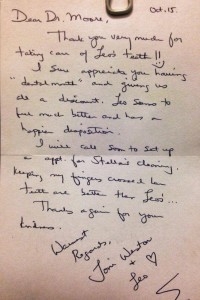 Oct. 15.
Dear Dr. Moore,
Thank you very much for
taking care of Leo's teeth!!
I sure appreciate you having
"dental month" and giving us
a discount. Leo seems to
feel much better and has a
happier disposition.
I will call soon to set up
a appt. for Stella's cleaning.
keeping my fingers crossed her
teeth are better than Leo's...
Thanks again for your
kindness.
Warmest
Regards,
Toni Weston
+ Leo